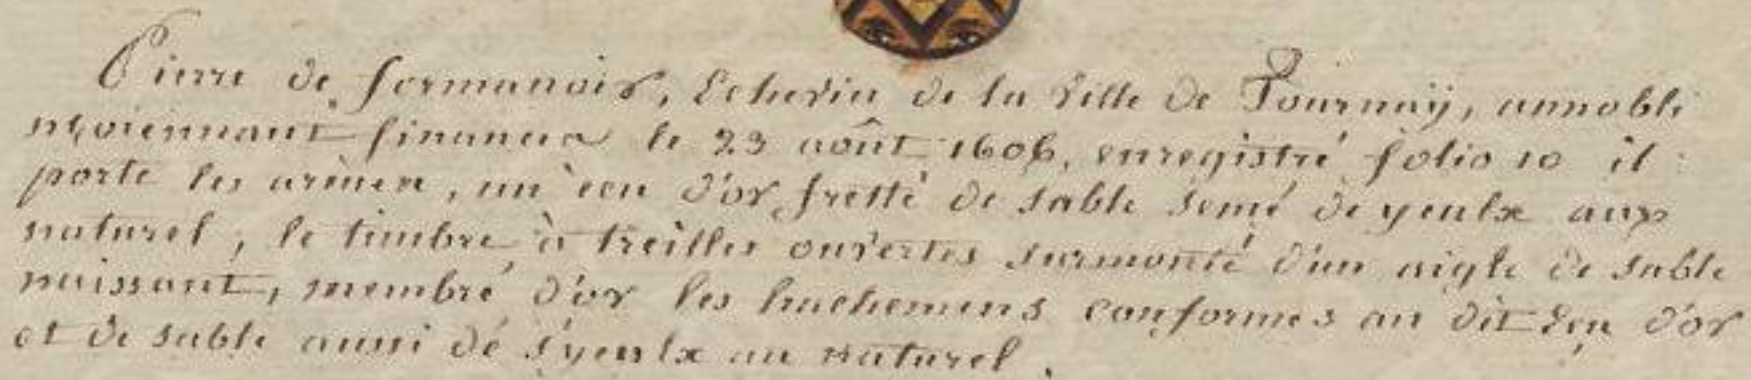 Pierre de formanoir, Echevin de la Ville de Tournaÿ, annobli
moiennant finance le 23 août 1606, enregistré folio 10 il
porte les armes, un ecu d'or fretté de sable semé de yeulx aux
naturel, le timbre à treilles ouvertes surmonté d'un aigle de sable
naissant, membré d'or les hachemens conformes au dit Ecu d'or
et de sable aussi dé d'yeulx au naturel.